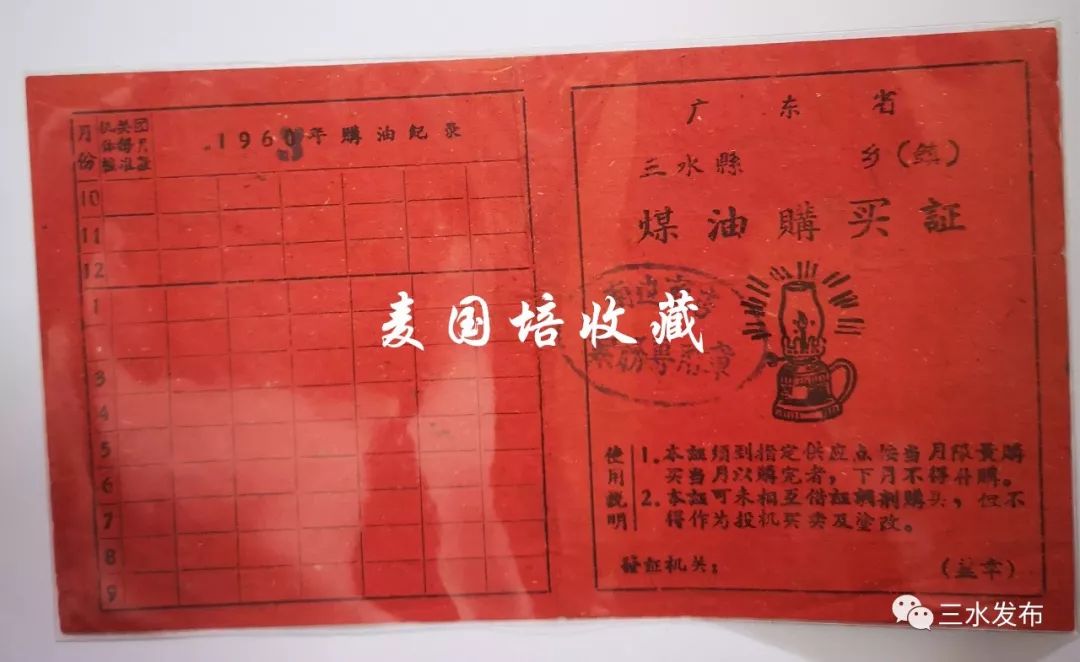 月份
1960年購油紀录
10
11
12
1
3
4
5
6
7
8
9
广东省
三水縣 乡(鎮)
煤油購买証
業務專用章
使用說明
1. 本証须到指定供应点按当月限量購
买当月以購完者，下月不得补購。
2. 本証可未相互借証調剂購买，但不
得作为投机买卖及塗改。
發証机关： (盖章)
麦国培收藏
三水发布